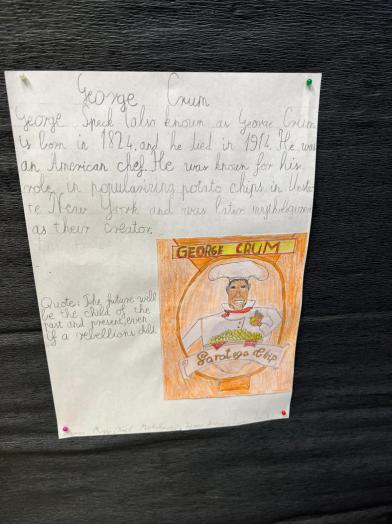 George Crum
George Speck (also known as George Crum
is born in 1824, and he died in 1914. He was
an American chef. He was known for his
role in popularizing potato chips in Upsta-
te New York and was later mythologized
as their creator.
GEORGE CRUM
Quote: The future will
be the child of the
past and present, even
if a rebellious child.
Saratoga Chip